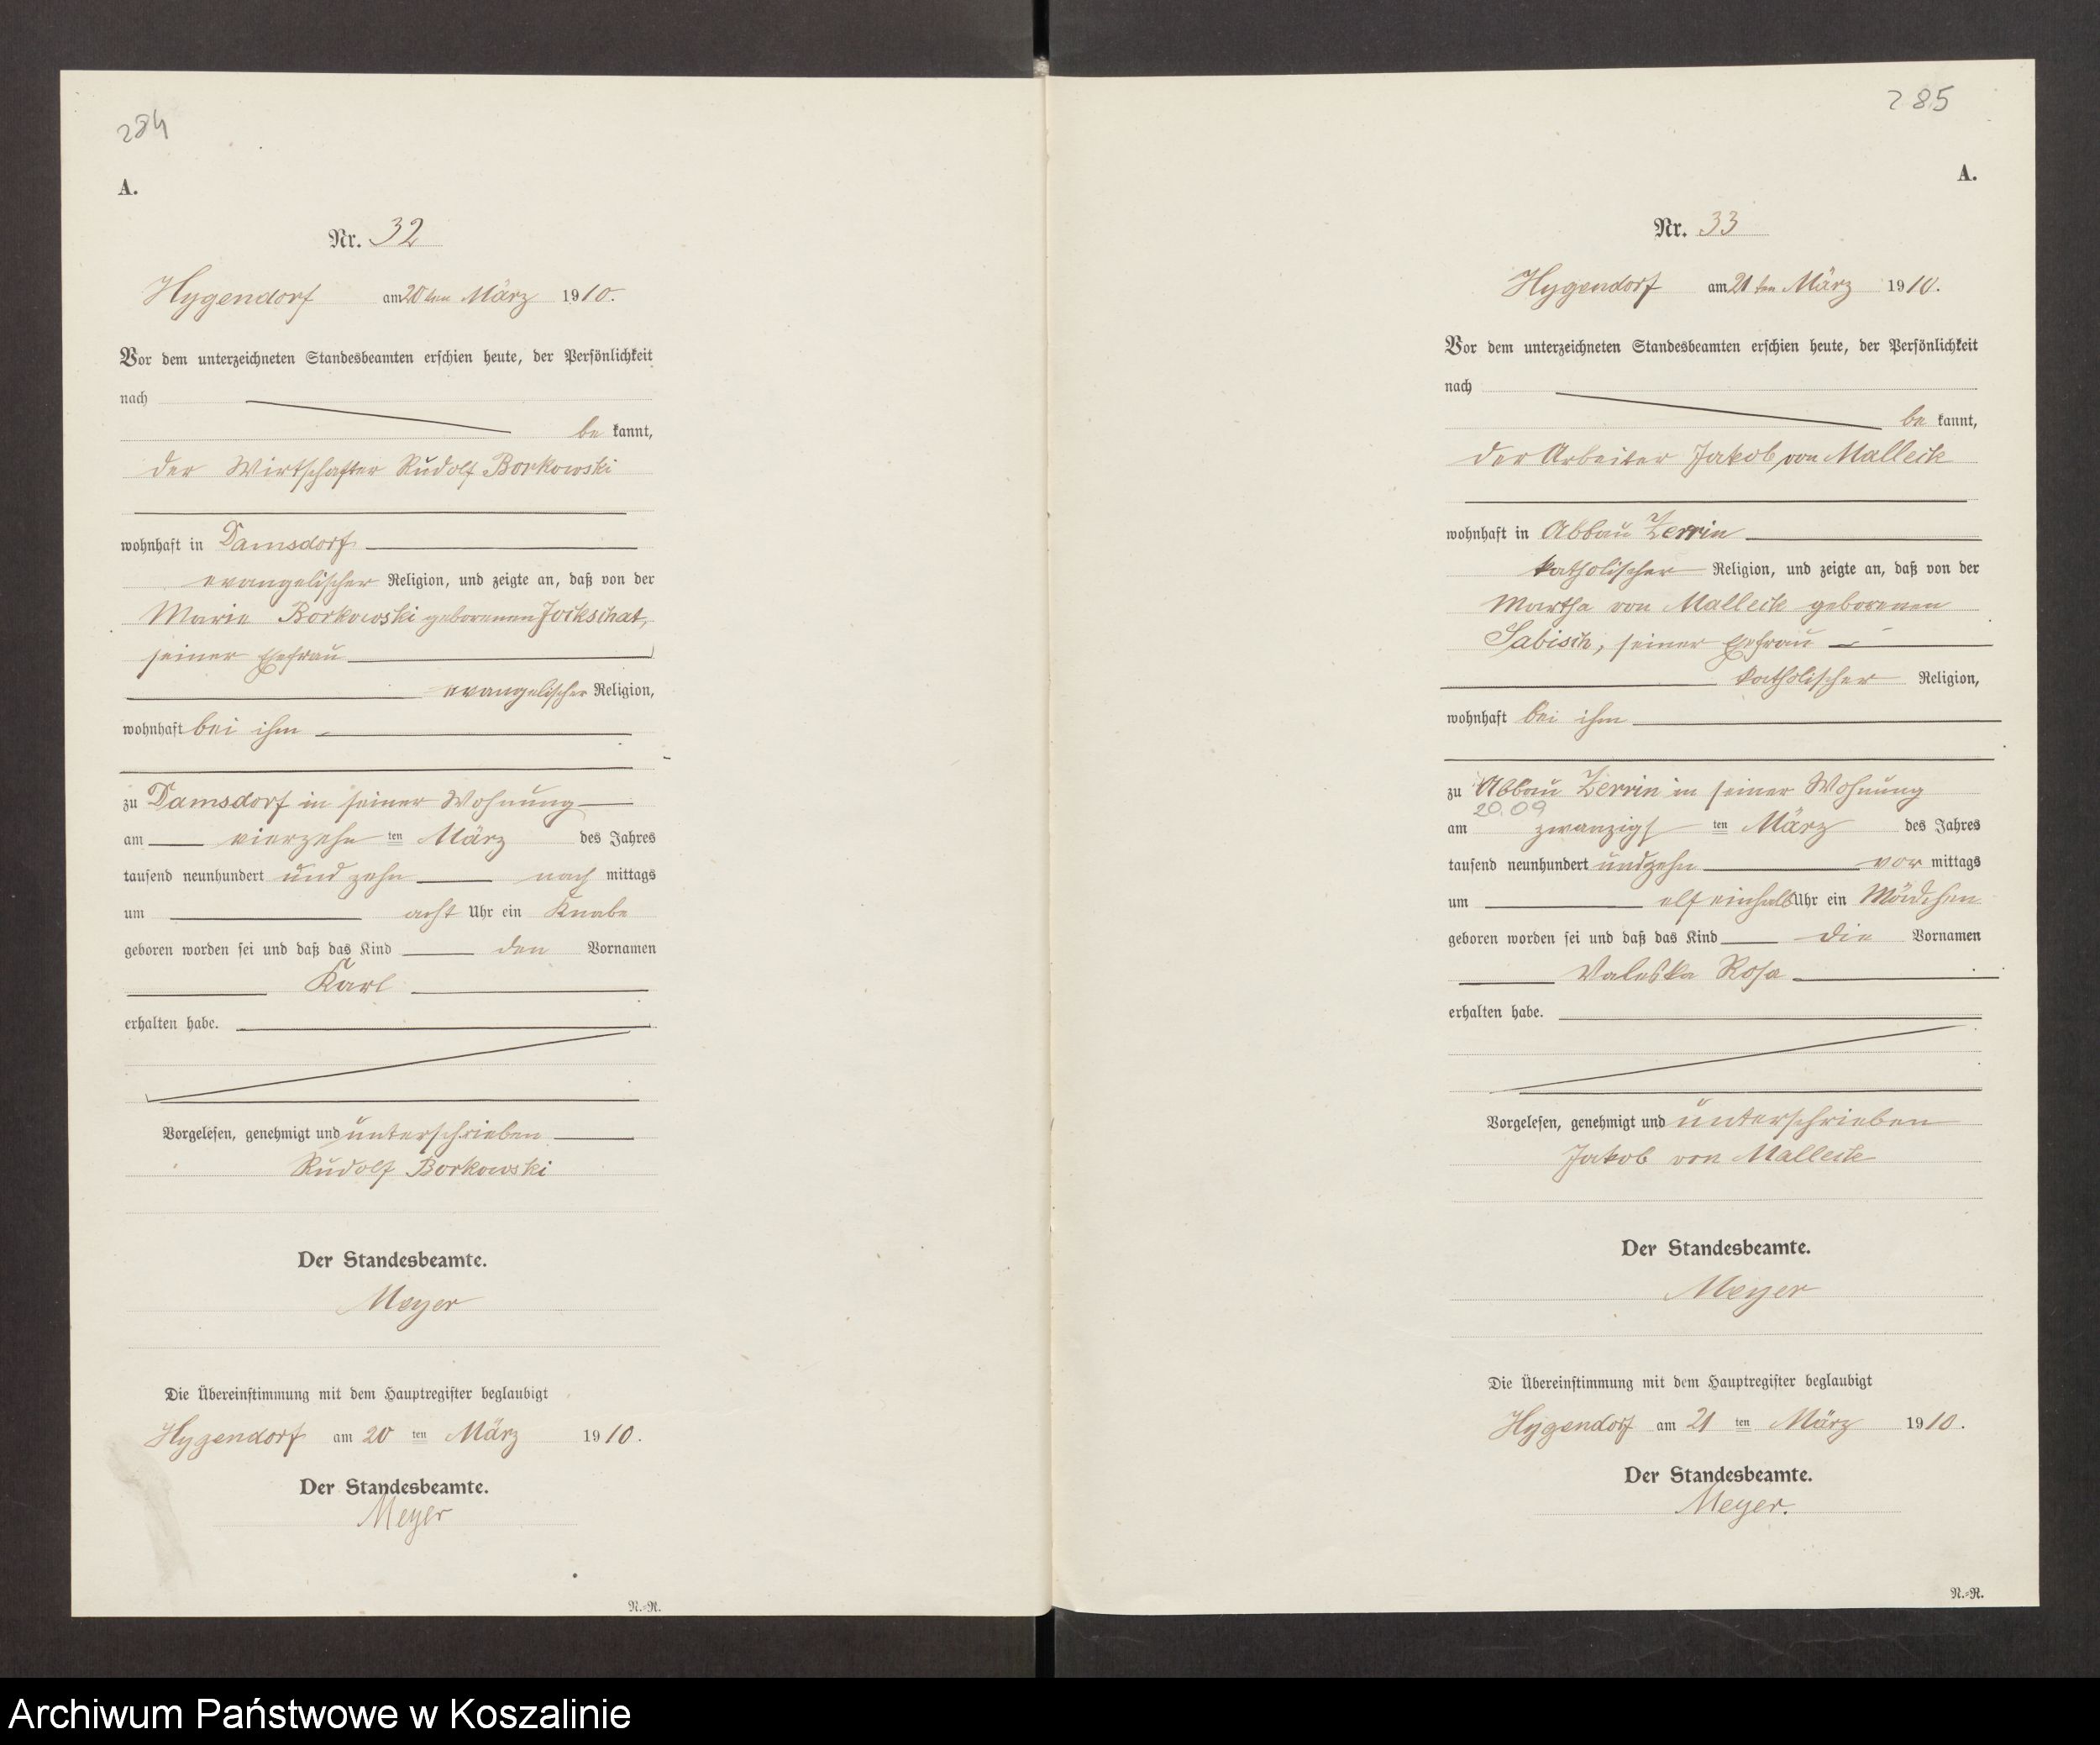 284
A.
Nr. 32
Hygendorf am 20ten März 1910.
Vor dem unterzeichneten Standesbeamten erschien heute, der Persönlichkeit
nach
be kannt,
der Wirtschafter Rudolf Borkowski
wohnhaft in Damsdorf
evangelischer Religion, und zeigte an, daß von der
Marie Borkowski geborenen Jockschat,
seiner Ehefrau
evangelischer Religion,
wohnhaft bei ihm
zu Damsdorf in seiner Wohnung
am vierzehn ten März des Jahres
tausend neunhundert und zehn nach mittags
um acht Uhr ein Knabe
geboren worden sei und daß das Kind den Vornamen
Karl
erhalten habe.
Vorgelesen, genehmigt und unterschrieben
Rudolf Borkowski
Der Standesbeamte.
Meyer
Die Übereinstimmung mit dem Hauptregister beglaubigt
Hygendorf am 20 ten März 1910.
Der Standesbeamte.
Meyer
N.-R.
285
A.
Nr. 33
Hygendorf am 21ten März 1910.
Vor dem unterzeichneten Standesbeamten erschien heute, der Persönlichkeit
nach
be kannt,
der Arbeiter Jakob von Malleck
wohnhaft in Abbau Zerrin
katholischer Religion, und zeigte an, daß von der
Martha von Malleck geborenen
Sabisch, seiner Ehefrau
katholischer Religion,
wohnhaft bei ihm
zu Abbau Zerrin in seiner Wohnung
20.09
am zwanzigs ten März des Jahres
tausend neunhundert undzehn vor mittags
um elf einhalb Uhr ein Mädchen
geboren worden sei und daß das Kind die Vornamen
Valeska Rosa
erhalten habe.
Vorgelesen, genehmigt und unterschrieben
Jakob von Malleck
Der Standesbeamte.
Meyer
Die Übereinstimmung mit dem Hauptregister beglaubigt
Hygendorf am 21 ten März 1910.
Der Standesbeamte.
Meyer.
N.-R.
Archiwum Państwowe w Koszalinie